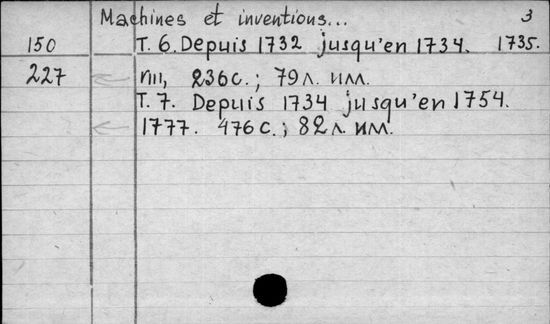 Machines et inventions... 3
150 T. 6. Depuis 1732 jusqu'en 1734. 1735.
227 VIII, 236 с.; 79 л. илл.
T. 7. Depuis 1734 jusqu'en 1754.
1777. 476 с.; 82 л. илл.